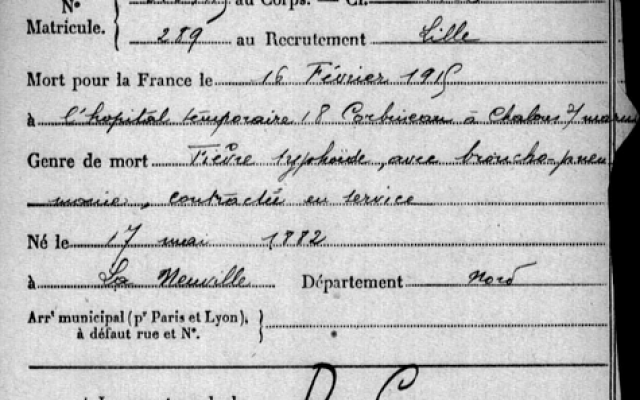 N°
au Corps. — Cl.
Matricule.
289 au Recrutement Lille
Mort pour la France le 16 Février 1915
à l'hopital temporaire 18 Corbineau à Chalons s/ marne
Genre de mort Fièvre typhoïde, avec broncho-pneu
monie, contractée en service
Né le 17 mai 1882
à La Neuville Département Nord
Arr' municipal (p' Paris et Lyon),
à défaut rue et N°.